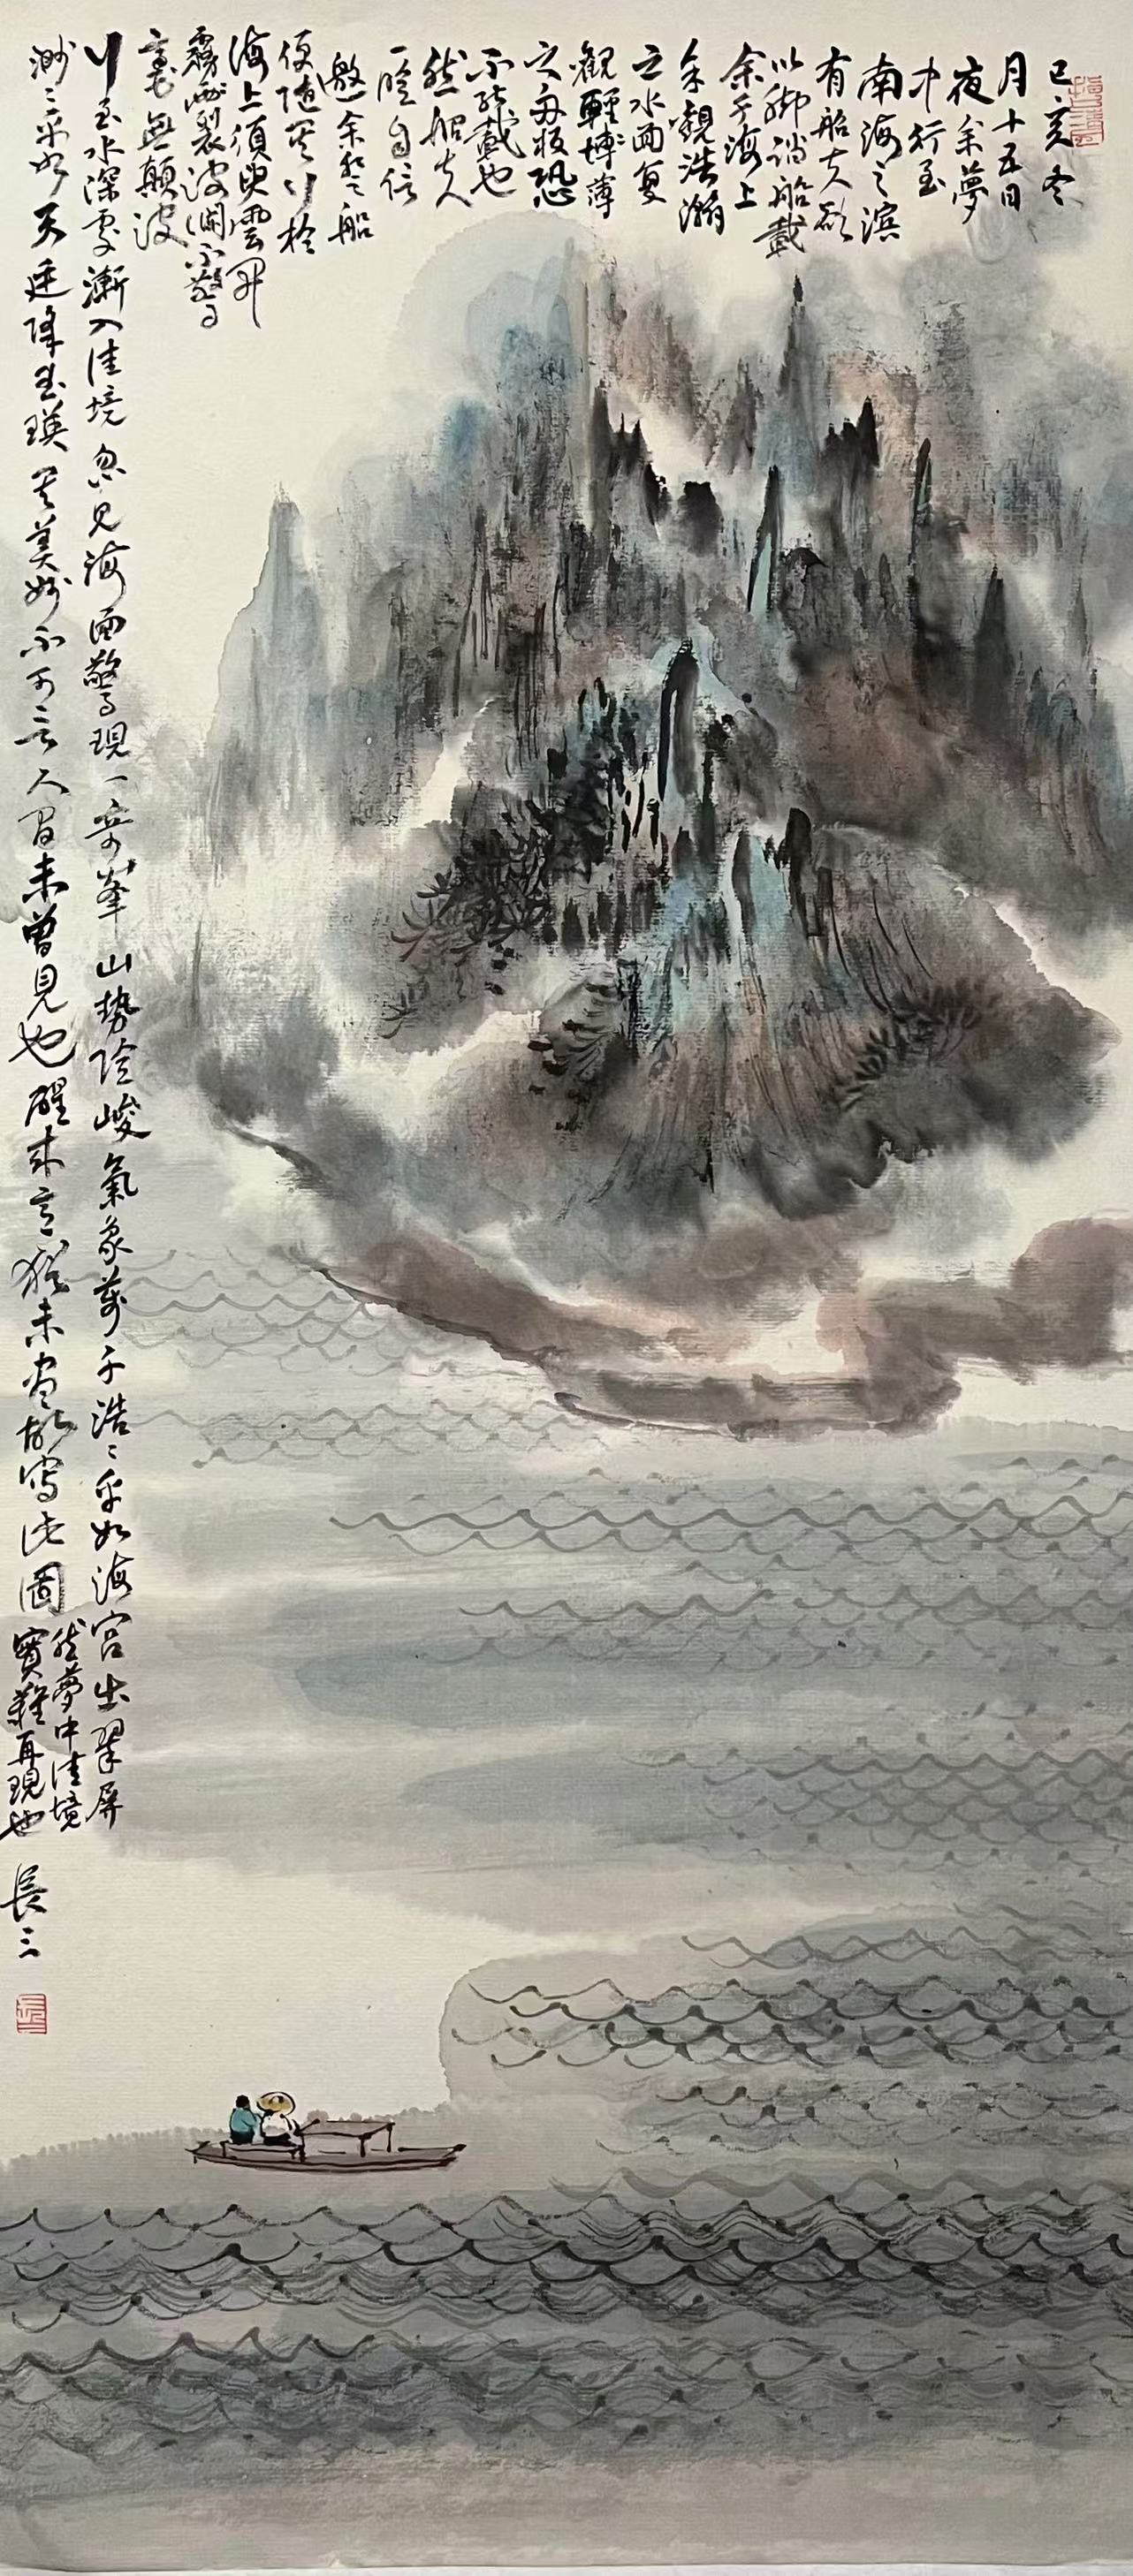 己亥冬
月十五日
夜余夢
中行至
南海之滨
有船夫欲
以脚踏船載
余于海上
余觀浩瀚
之水面复
觀輕博薄
之舟板恐
不能載也
然船夫
一臉自信
邀余登船
便随其行於
海上須臾雲開
霧散製波瀾不驚
毫無顛波
行至水深處漸入佳境忽見海面驚現一奇峯山势险峻氣象萬千浩浩乎如海宫出翠屏
渺渺乎如天廷降玉瑛其美妙不可言人間未曾見也醒来意犹未尽故寫此圖
然夢中佳境
實難再現也
長三